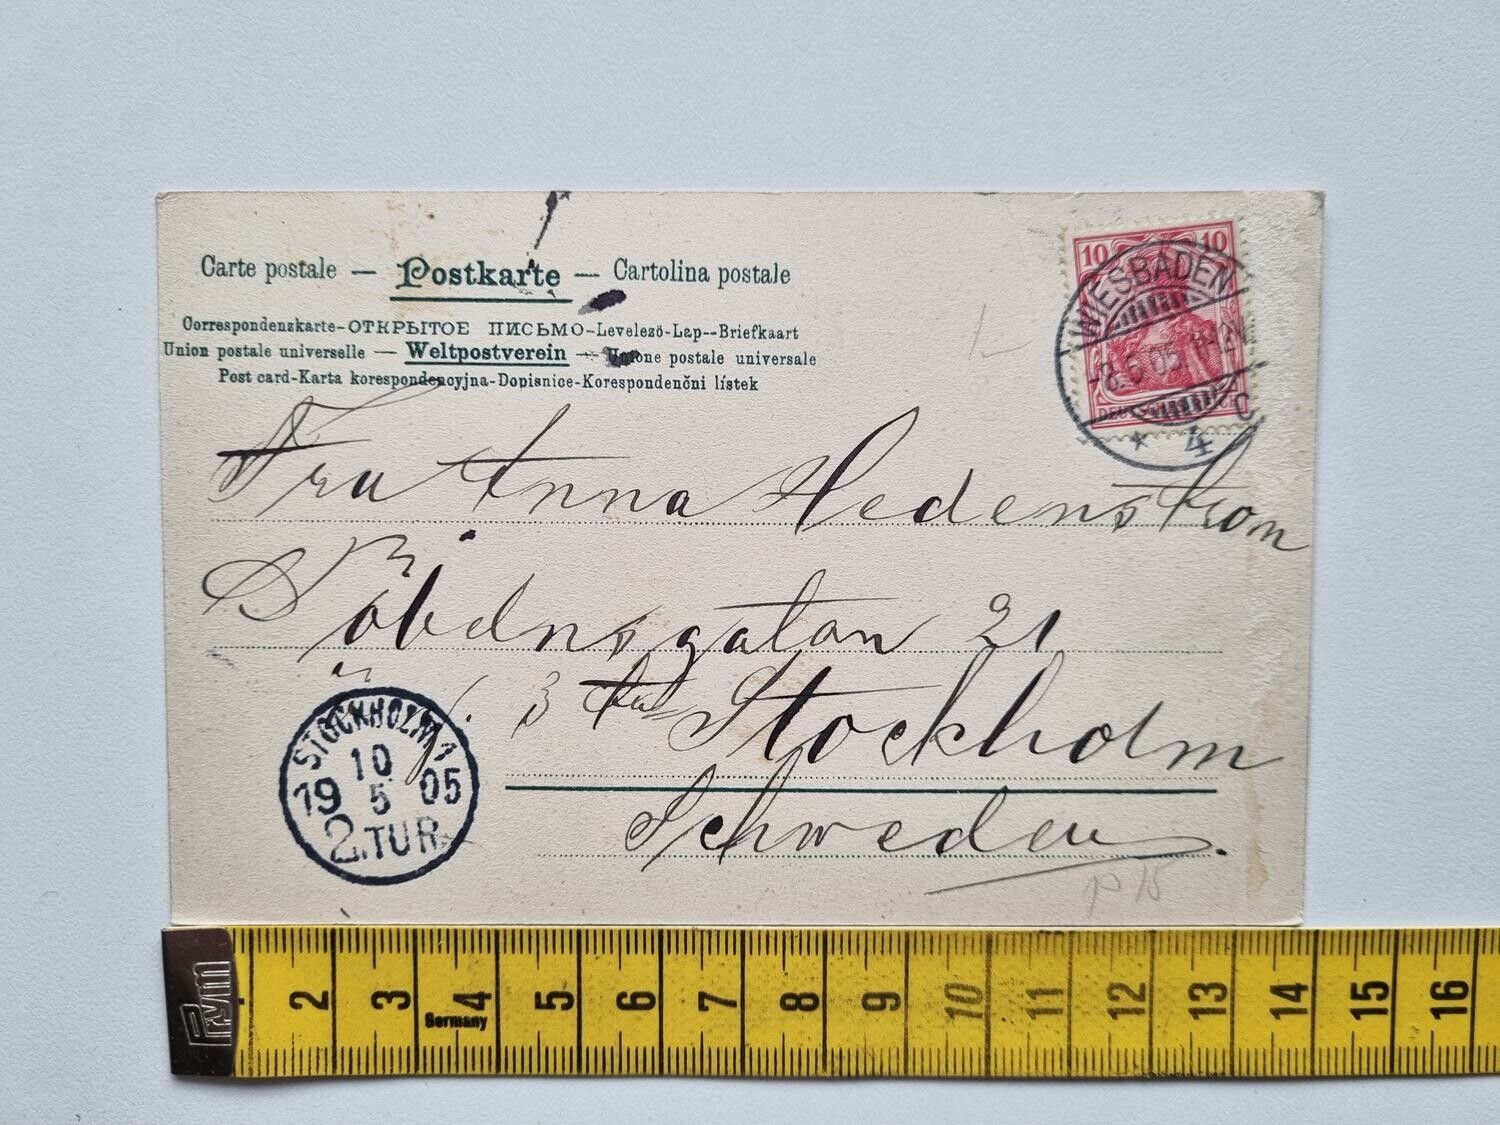 Carte postale — Postkarte — Cartolina postale
Correspondenzkarte-ОТКРЫТОЕ ПИСЬМО-Levelezö-Lap--Briefkaart
Union postale universelle — Weltpostverein — Unione postale universale
Post card-Karta korespondencyjna-Dopisnice-Korespondenčni lístek
10 10
WIESBADEN
-8.5.05
DEUTSCHES REICH
* 4 C
Fru Anna Hedenstrom
21
3 Stockholm
Schweden.
STOCKHOLM 1
10
19 5 05
2.TUR.
Prym
2 3 4 5 6 7 8 9 10 11 12 13 14 15 16
Germany